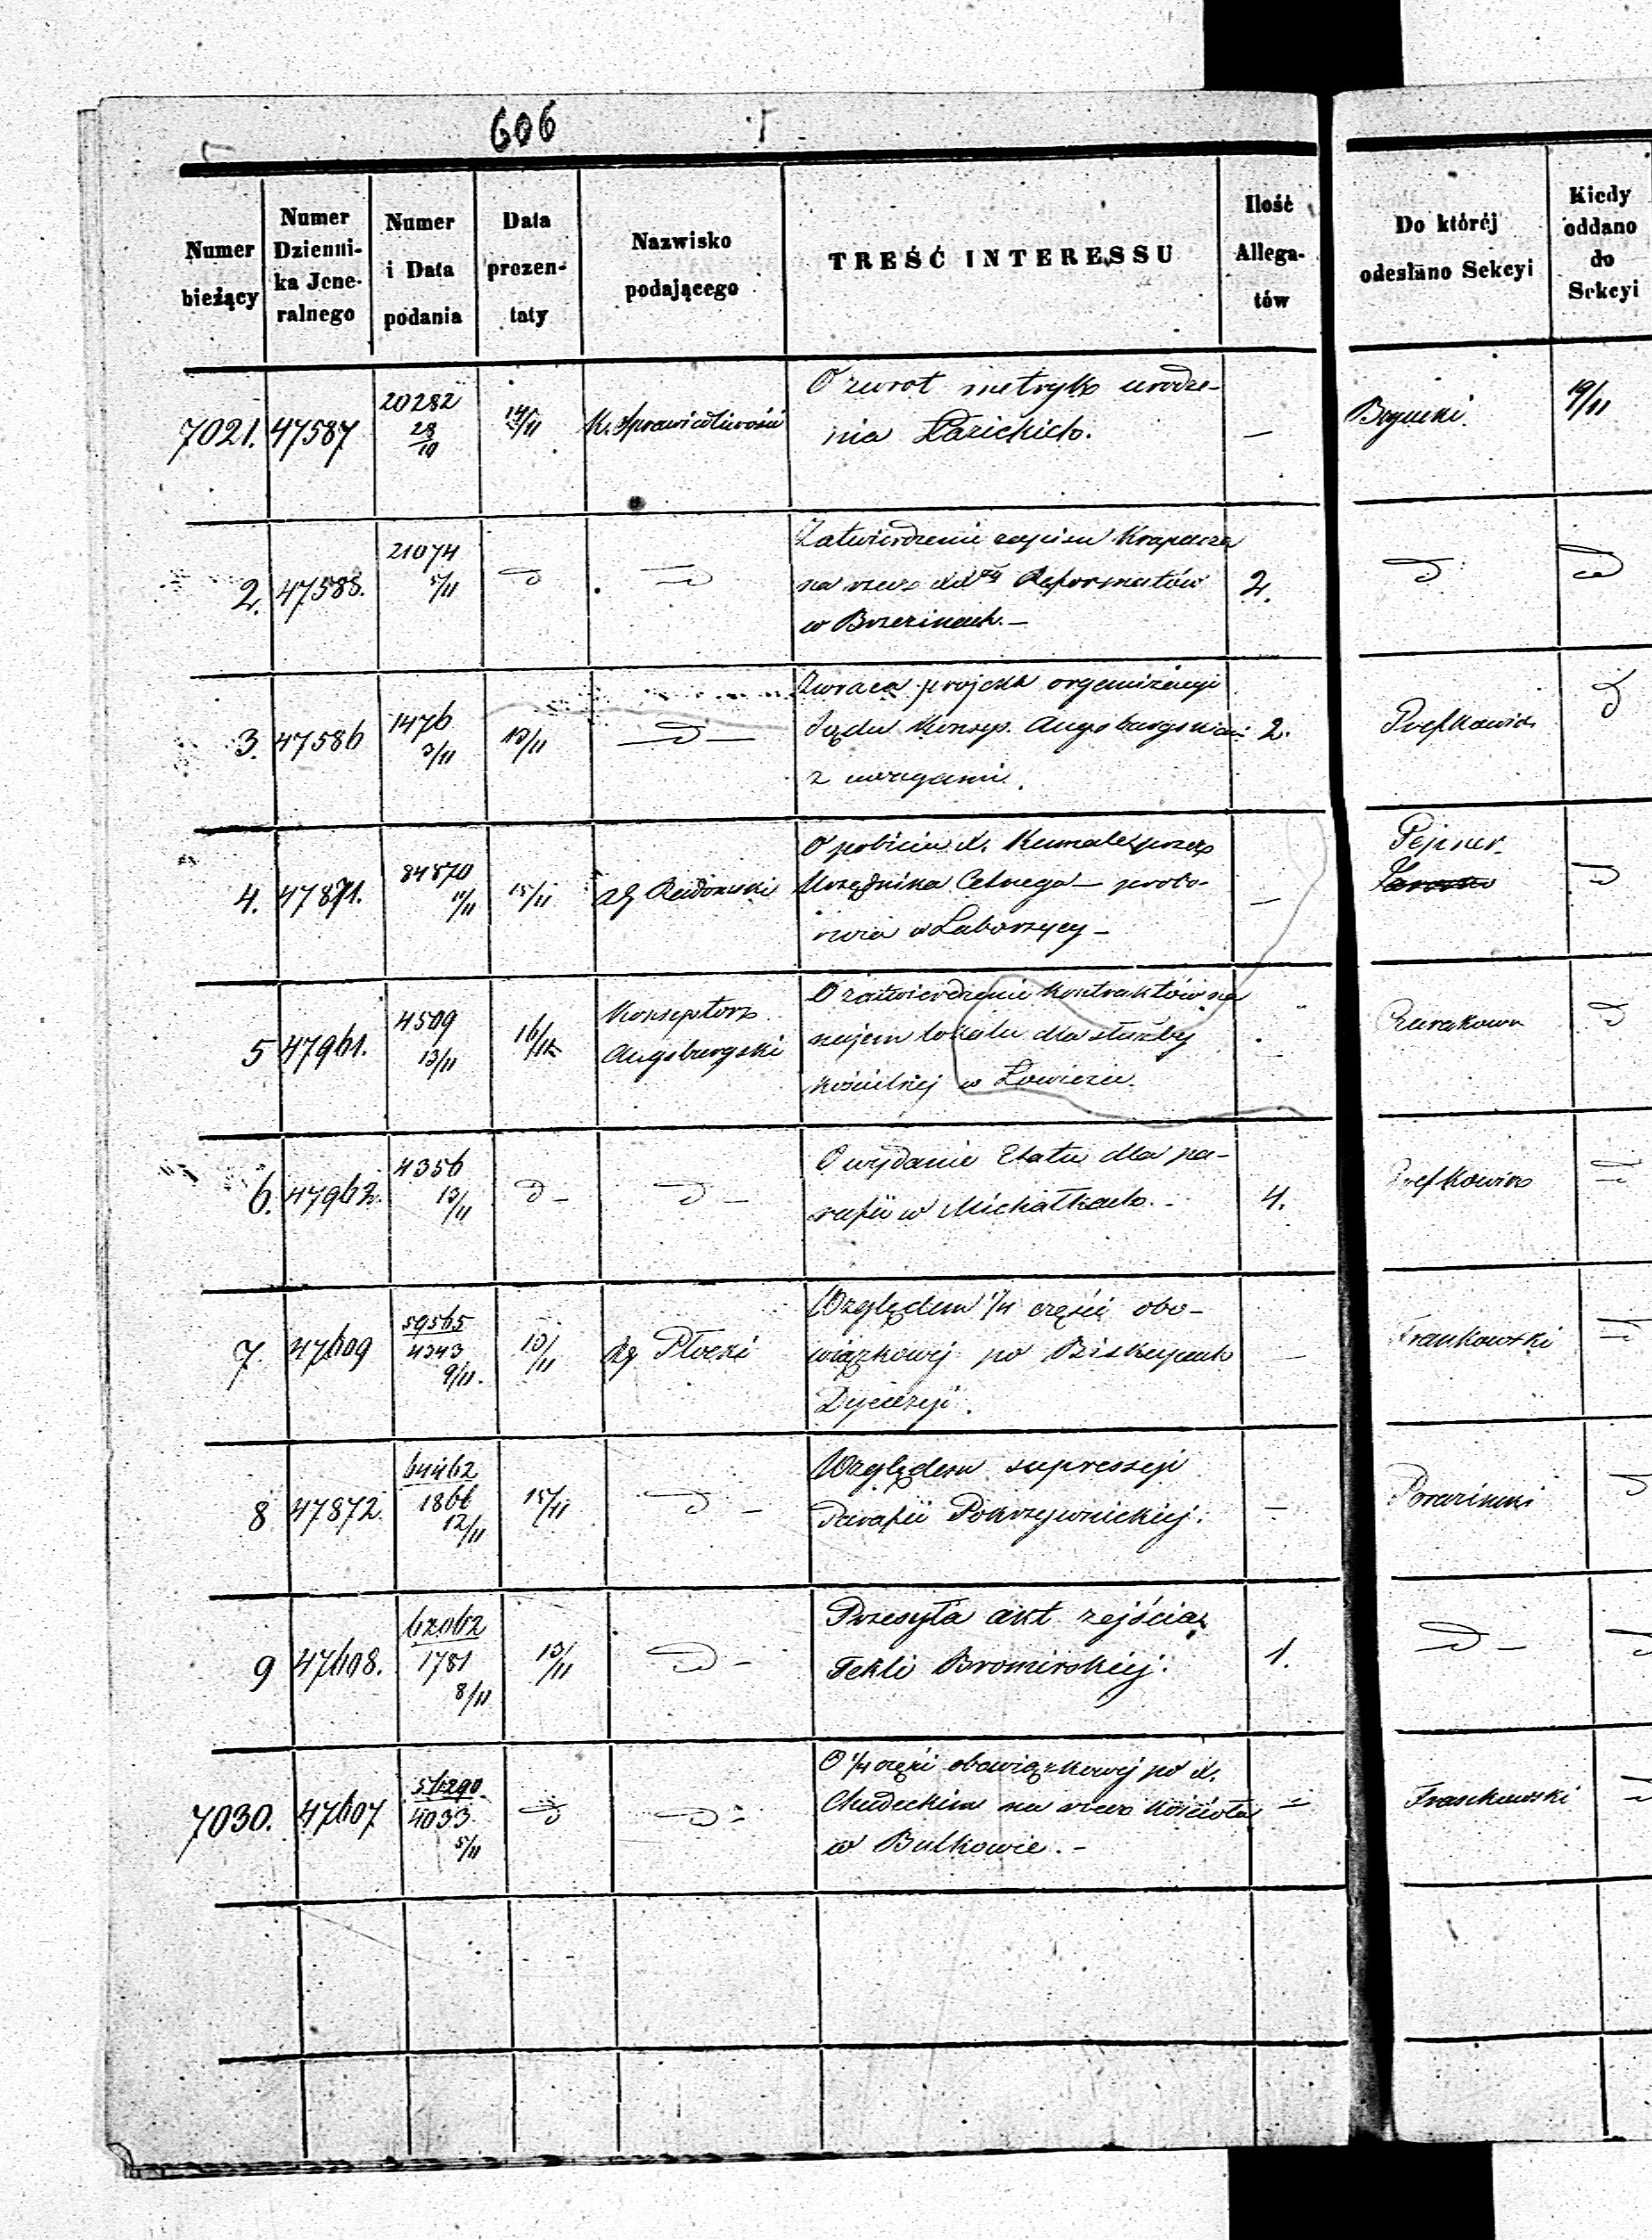 606
Numer bieżący
Numer Dzienni-ka Jene-ralnego
Numer i Data podania
Data prezen-taty
Nazwisko podającego
TREŚĆ INTERESSU
Ilość Allega-tów
Do któréj odesłano Sekcyi
Kiedy oddano do Sekcyi
7021. 47587 20282 28/10 14/11 K. Sprawiedliwości
O zwrot metryk urodze-
nia Łazickich. — 19/11
2. 47588. 21074 5/11
Zatwierdzenie zapisu
na rzecz Reformatów 2.
w Brzezinach. —
3. 47586 1476 3/11 13/11
Zwraca projekt organizacyi
Sądu Konsys. Augsburgskiego 2.
z uwagami.
4. 47871. 84870 11/11 15/11 Radomski
O pobiciu X. przez
Urzędnika Celnego — probo-
szcza w Luborzycy — Pejner.
5 47961. 4509 13/11 16/11 Konsystorz Augsburgski
O zatwierdzenie kontraktów na
najem lokalu dla służby
kościelnej w Łowiczu.
6. 47962. 4356 13/11
O wydanie Etatu dla pa-
rafii w Michałkach. - 4.
7. 47609 59565 4343 9/11. 13/11 Płocki
Względem 1/4 części obo-
wiązkowej po Biskupach — Frankowski
Dyecezyi.
8 47872 64462 1866 12/11 15/11
Względem supressyi
Parafii Pokrzywnickiej. —
9 47608. 62062 1781 8/11 13/11
Przesyła akt zejścia
Tekli Bromirskiej. 1.
7030. 47607 56290 4033 5/11
O 1/4 części obowiązkowej po X.
Chudeckim na rzecz kościoła Frankowski
w Bulkowie. -